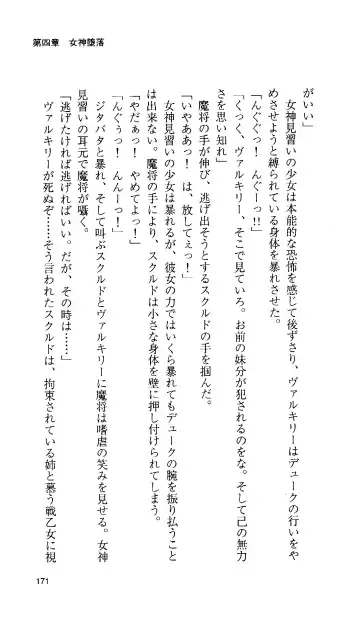 第四章　女神堕落
がいい」
　女神見習いの少女は本能的な恐怖を感じて後ずさり、ヴァルキリーはデュークの行いをや
めさせようと縛られている身体を暴れさせた。
「んぐぐっ！　んぐーっ!!」
「くっく、ヴァルキリー、そこで見ていろ。お前の妹分が犯されるのをな。そして己の無力
さを思い知れ」
　魔将の手が伸び、逃げ出そうとするスクルドの手を掴んだ。
「いやああっ！　は、放してぇっ！」
　女神見習いの少女は暴れるが、彼女の力ではいくら暴れてもデュークの腕を振り払うこと
は出来ない。魔将の手により、スクルドは小さな身体を壁に押し付けられてしまう。
「やだぁっ！　やめてよっ！」
「んぐぅっ！　んんーっ！」
　ジタバタと暴れ、そして叫ぶスクルドとヴァルキリーに魔将は嗜虐の笑みを見せる。女神
見習いの耳元で魔将が囁く。
「逃げたければ逃げればいい。だが、その時は……」
　ヴァルキリーが死ぬぞ……そう言われたスクルドは、拘束されている姉と慕う戦乙女に視
171